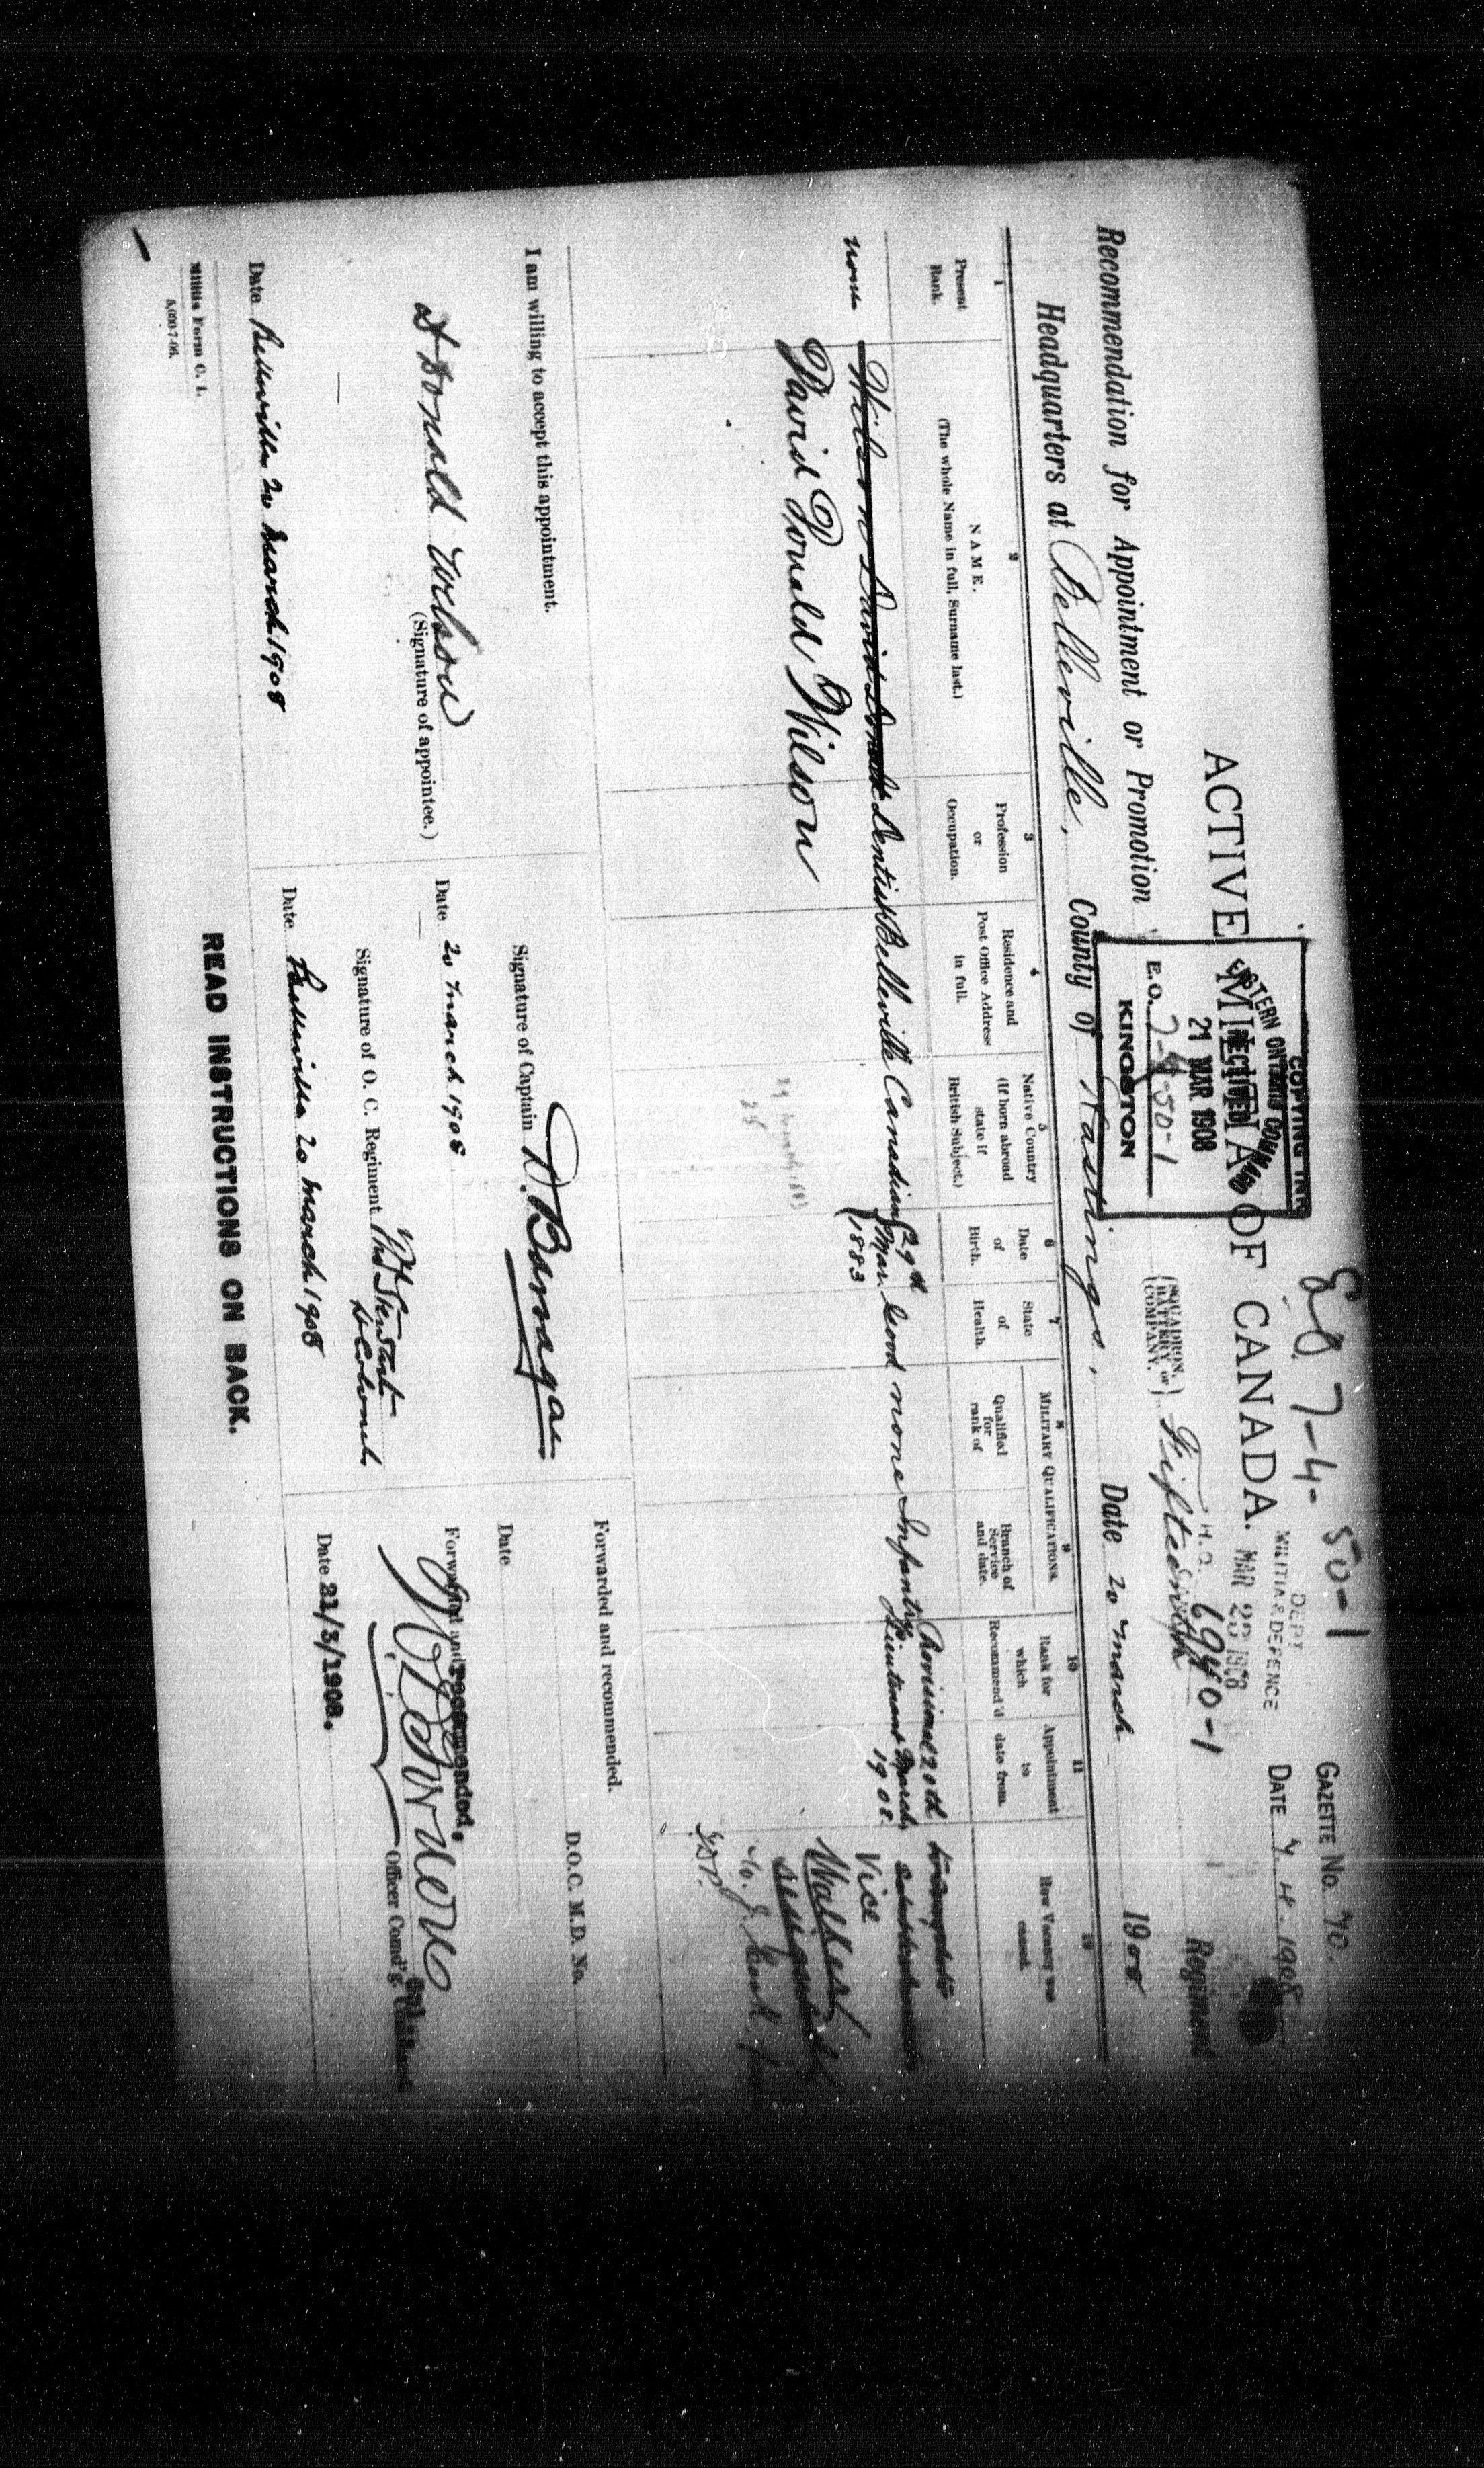 EO 7-4-50-1
GAZETTE No. 40.
DEPT
MILITIA & DEFENCE
MAR 1908
DATE 7.4.1908
COPYING INK
EASTERN ONTARIO COMMAND
RECEIVED
21 MAR 1908
E.O. 7-4-50-1
KINGSTON
ACTIVE MILITIA OF CANADA.
H.Q. 6940-1
Recommendation for Appointment or Promotion
(SQUADRON, BATTERY, or COMPANY.) Fifteenth Regiment
Headquarters at Belleville, County of Hastings. Date 20 March 1908
1
Present
Rank.
2
NAME.
(The whole Name in full, Surname last.)
3
Profession
or
Occupation.
4
Residence and
Post Office Address
in full.
5
Native Country
(If born abroad
state if
British Subject.)
6
Date
of
Birth.
7
State
of
Health.
MILITARY QUALIFICATIONS.
8
Qualified
for
rank of
9
Branch of
Service
and date.
10
Rank for
which
Recommend'd
11
Appointment
to
date from.
12
How Vacancy was
caused.
none
Wilson David Donald
Dentist
Belleville
Canadian
29th
Mar.
1883
Good
none
Infantry
Provisional
Lieutenant
20th
March
1908.
Vice
Walker
David Donald Wilson
I am willing to accept this appointment.
D Donald Wilson
(Signature of appointee.)
Date Belleville 20 March 1908
Signature of Captain D. Barragar
Date 20 March 1908
Signature of O. C. Regiment
Stewart
Lt Colonel
Date Belleville 20 March 1908
Forwarded and recommended.
D.O.C. M.D. No.
Date
Forwarded and recommended,
Officer Comd'g.
Date 21/3/1908.
Militia Form C. 1.
5,000-7-06.
READ INSTRUCTIONS ON BACK.